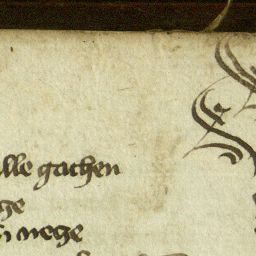 lle gachen
ge
n wege